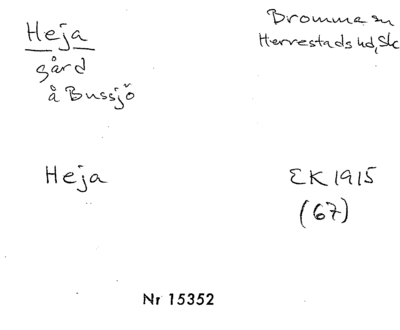 Heja
gård
å Bussjö
Bromma sn
Herrestads hd, Sk
Heja
EK 1915
(67)
Nr 15352